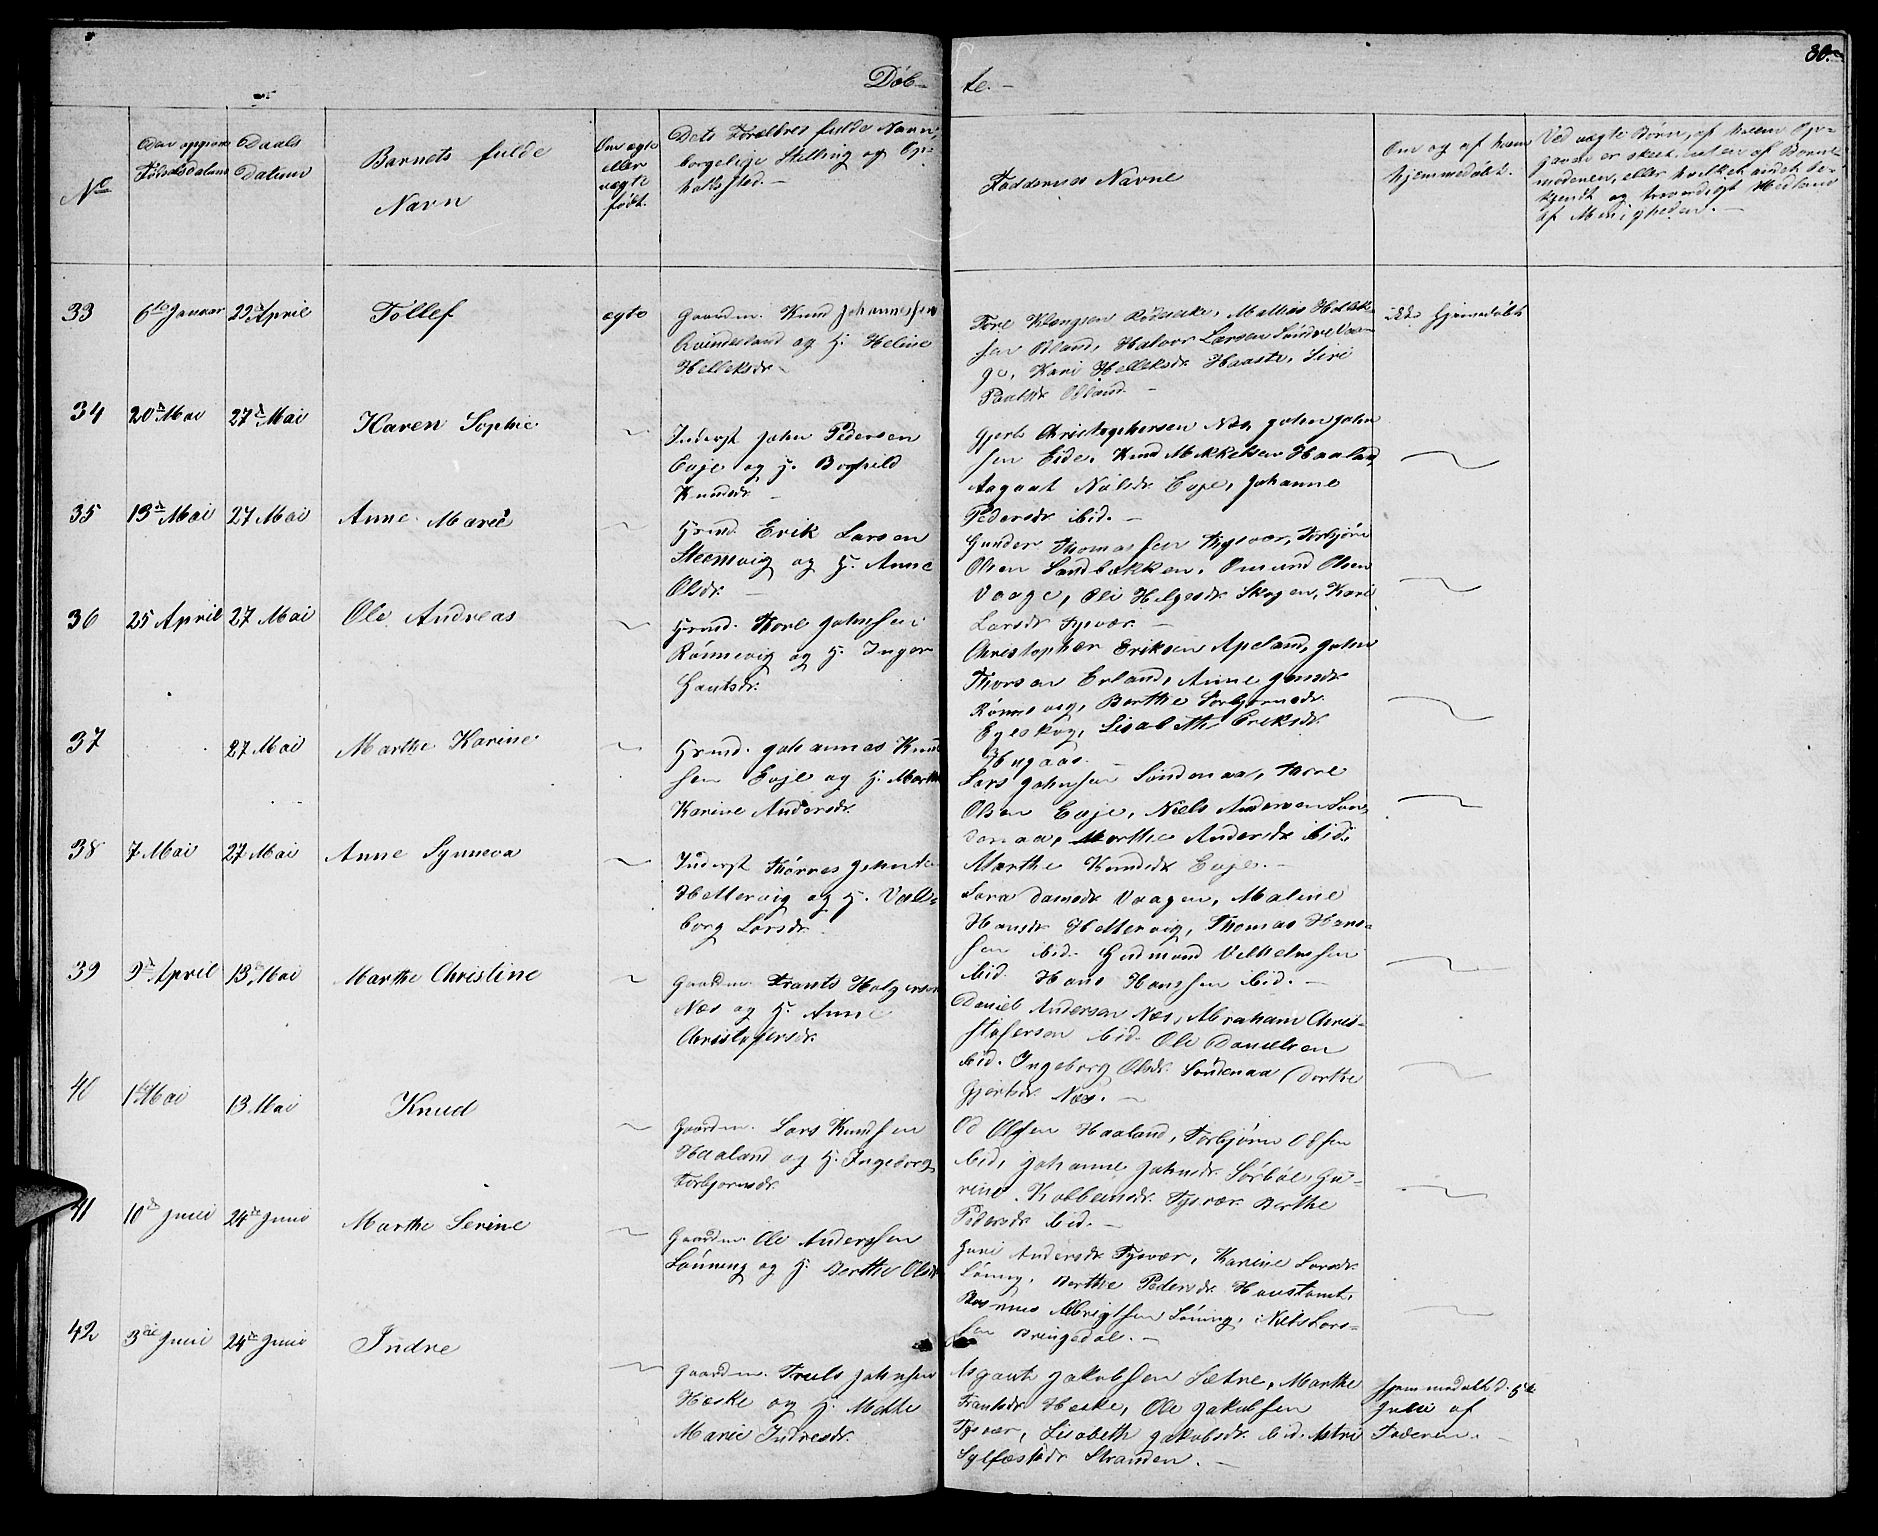 Døb-
te.-
30.
No
Den opgivne Fødselsdatum
Daabs Datum
Barnets fulde Navn
Om ægte eller uægte født.
Dets Forældres fulde Navn, borgelige Stilling og Opholdssted.-
Faddernes Navne
Om og af hvem hjemmedøbt.
Ved uægte Børn, af hvem Op-
gaven er skeet, enten af Barne-
moderen, eller hvilket andet be-
kjendt og troværdigt Medlem
af Menigheden.-
33
6te Januar
29de April
Tollef
ægte
Gaardm. Knud Johannesen
Qvindesland og H. Heline
Helleksdr.
Tore Klengsen
sen Øland, Halvor Larsen Søndre Vaa-
ge, Kari Helleksdr. Haaste, Siri
Paulsdr. Øland.-
ikke hjemmedøbt
34
20de Mai
27de Mai
Karen Sophie
Inderst John Pedersen
Evje og H. Borghild
Knudsdr.-
Gjert Christophersen Næs, John John-
sen Eide, Knud Mikkelsen Haaland
Aagaat Nilsdr. Evje, Johanne
Pedersdr. ibid.-
35
13de Mai
27 Mai
Anne Marie
Hrmd. Erik Larsen
Steensvig og H. Anne
Olsdr.-
Gunder Thomassen Tysvær, Torbjørn
Olsen Sandbækken, Omund Olsen
Vaage, Oli Helgesdr. Skogen, Kari
Larsdr. Tysvær.-
36
25 April
27 Mai
Ole Andreas
Hrmd. Thore Johnsen
Rønnevig og H. Inger
Gautsdr.
Christopher Eriksen Apeland, John
Thorsen Erland, Anne Jensdr.
Rønnevig, Berthe Torbjørnsdr.
Egeskog, Lisabeth Eriksdr.
37
27 Mai
Marthe Karine
Hrmd. Johannes Knud-
sen Evje og H. Marthe
Karine Andersdr.
Lars Johnsen Søndenaa, Thore
Olsen Evje, Niels Andersen Søn-
denaa, Marthe Andersdr. ibid.
Marthe Knudsdr. Evje.-
38
7 Mai
27 Mai
Anne Synneva
Inderst Thørres
Hettervig og H. Vall-
borg Larsdr.
Sara Vaagen, Maline
Hansdr. Hettervig, Thomas Han-
sen ibid. Gudmund Vilhelmsen
ibid. Hans Hanssen ibid.-
39
9de April
13de Mai
Marthe Christine
Gaardm. Frants Holgersen
Næs og H. Anne
Christofersdr.
Daniel Andersen Næs, Abraham Chri-
stofersen ibid. Ole Danielsen
ibid. Ingeborg Olsdr. Søndenaa, Dorthe
Gjertsdr. Næs.-
40
1te Mai
13 Mai
Knud
Gaardm. Lars Knudsen
Haaland og H. Ingeborg
Torbjørnsdr.
Od Olsen Haaland, Torbjørn Odsen
ibid, Johanne Johnsdr. Sørbøe, Gu-
rine Kolbeinsdr. Tysvær Berthe
Pedersdr. ibid.-
41
10de Juni
24de Juni
Marthe Serine
Gaardm. Ole Anderssen
Lønning og H. Berthe Olsdr.
Guri Andersdr. Tysvær, Karine Larsdr.
Lønning, Berthe Pedersdr. Haustømt,
Rasmus Albrigtsen Lønning, Niels Lars-
sen Bringedal.-
42
3die Juni
24de Juni
Indre
Gaardm. Truls Johnsen
Heske og H. Mette
Marie Indresdr.
Asgaut Jakobsen Sætre, Marthe
Frantsdr. Heske, Ole Jakobsen
Tysvær, Lisabeth Jakobsdr. ibid. Astri
Sylfæstdr. Stranden.-
hjemmedøbt d. 5te
Juni af
Faderen.-